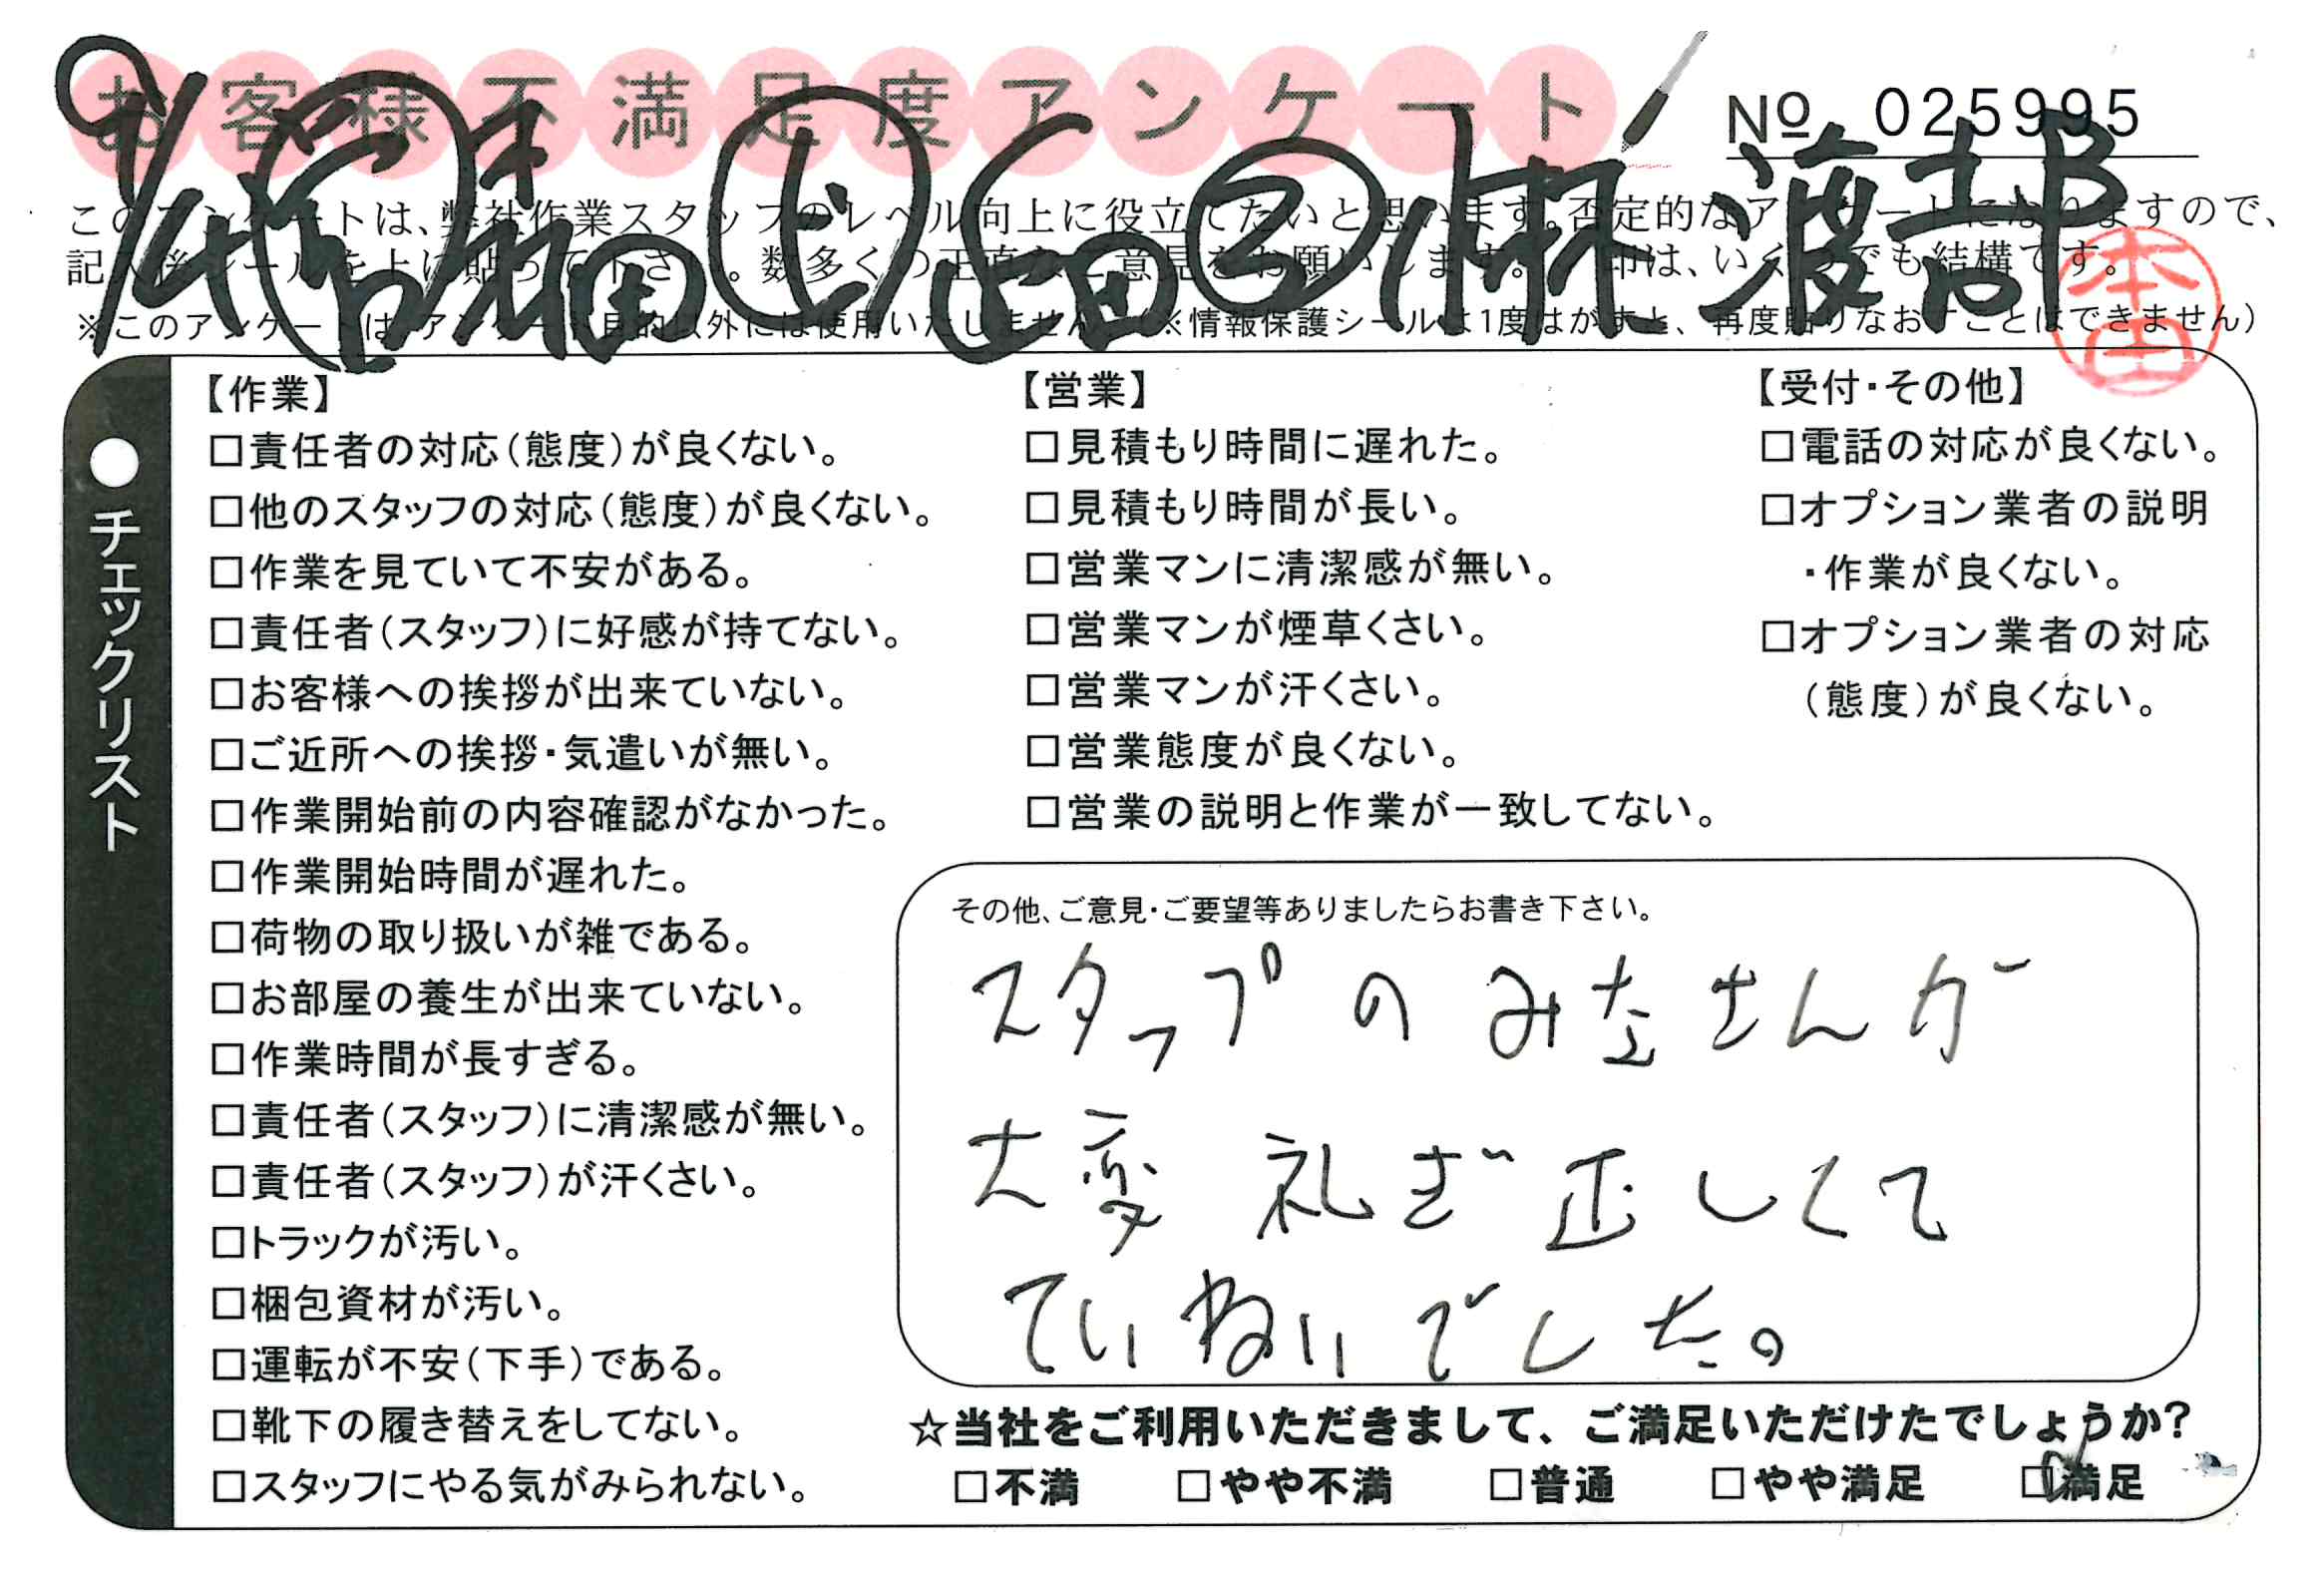 お客様不満足度アンケート
№ 025995
このアンケートは、弊社作業スタッフのレベル向上に役立てたいと思います。否定的なアンケートになりますので、
記入後シールを上に貼って下さい。数多くの正直なご意見をお願いします。 印は、いくつでも結構です。
※このアンケートは、アンケート目的以外には使用いたしません。(※情報保護シールは1度はがすと、再度貼りなおすことはできません)
田 上 田 ② 小林 渡部
本田
●チェックリスト
【作業】
□責任者の対応(態度)が良くない。
□他のスタッフの対応(態度)が良くない。
□作業を見ていて不安がある。
□責任者(スタッフ)に好感が持てない。
□お客様への挨拶が出来ていない。
□ご近所への挨拶・気遣いが無い。
□作業開始前の内容確認がなかった。
□作業開始時間が遅れた。
□荷物の取り扱いが雑である。
□お部屋の養生が出来ていない。
□作業時間が長すぎる。
□責任者(スタッフ)に清潔感が無い。
□責任者(スタッフ)が汗くさい。
□トラックが汚い。
□梱包資材が汚い。
□運転が不安(下手)である。
□靴下の履き替えをしてない。
□スタッフにやる気がみられない。
【営業】
□見積もり時間に遅れた。
□見積もり時間が長い。
□営業マンに清潔感が無い。
□営業マンが煙草くさい。
□営業マンが汗くさい。
□営業態度が良くない。
□営業の説明と作業が一致してない。
【受付・その他】
□電話の対応が良くない。
□オプション業者の説明
・作業が良くない。
□オプション業者の対応
(態度)が良くない。
その他、ご意見・ご要望等ありましたらお書き下さい。
スタップのみなさんが
大変礼ぎ正しくて
ていねいでした。
☆当社をご利用いただきまして、ご満足いただけたでしょうか?
□不満 □やや不満 □普通 □やや満足 □満足